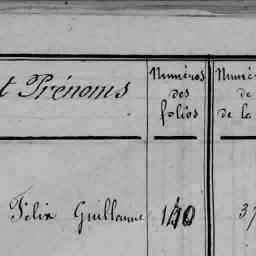 t Prénoms
Numéros
des
folios
Numé
de
de la
Félix Guillaume
140
37